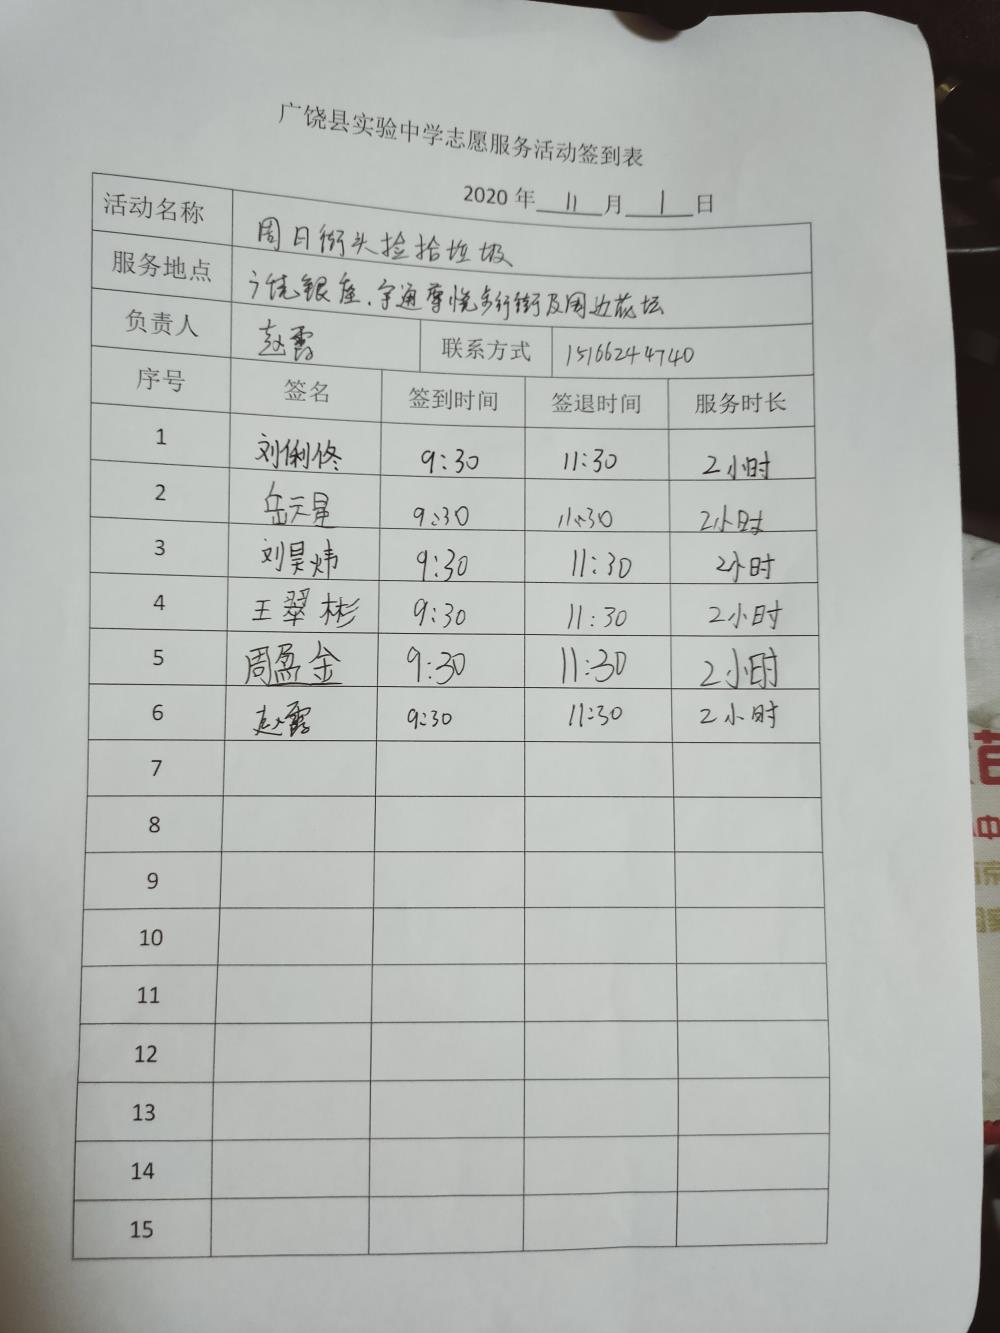 广饶县实验中学志愿服务活动签到表
2020 年 11 月 1 日
活动名称 周日街头捡拾垃圾
服务地点 广饶银座、宇通尊悦步行街及周边花坛
负责人 赵霞 联系方式 15166244740
序号 签名 签到时间 签退时间 服务时长
1 刘俐佟 9:30 11:30 2小时
2 岳天昂 9:30 11:30 2小时
3 刘昊炜 9:30 11:30 2小时
4 王翠彬 9:30 11:30 2小时
5 周盈金 9:30 11:30 2小时
6 赵霞 9:30 11:30 2小时
7
8
9
10
11
12
13
14
15
中